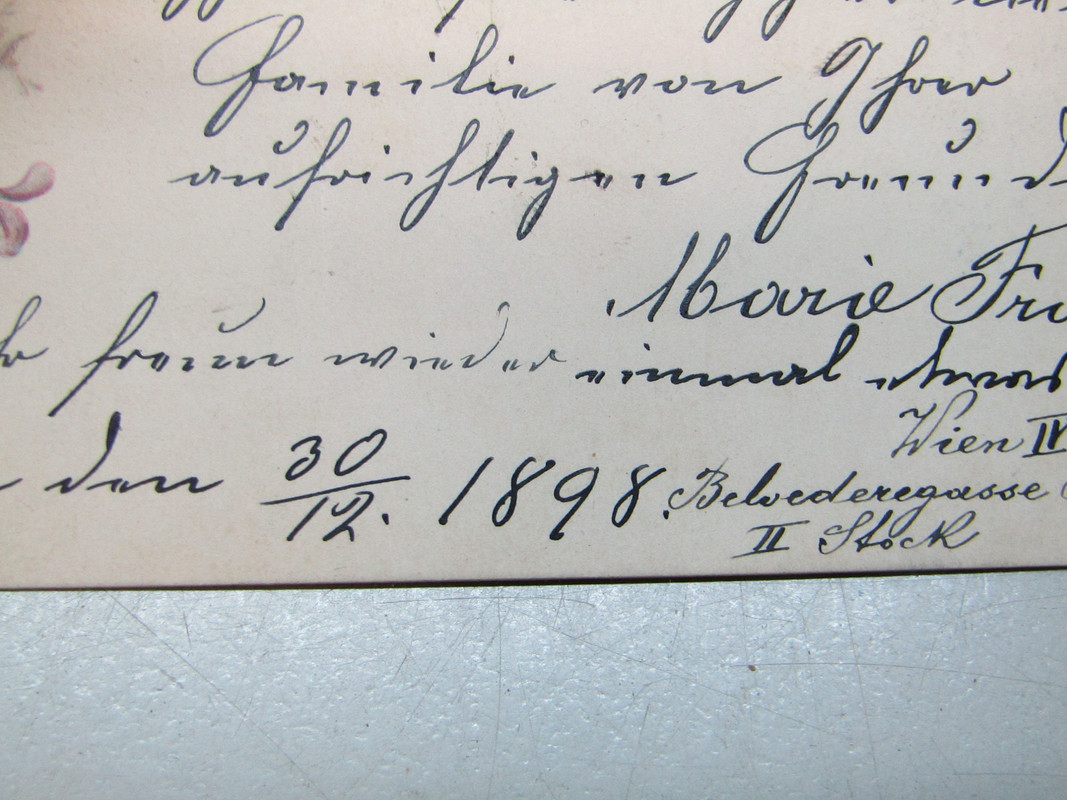 Familie von Ihrer
aufrichtigen Freund
Marie Fra
freuen wieder einmal etwas
Wien IV
den 30/12. 1898. Belvederegasse
II Stock